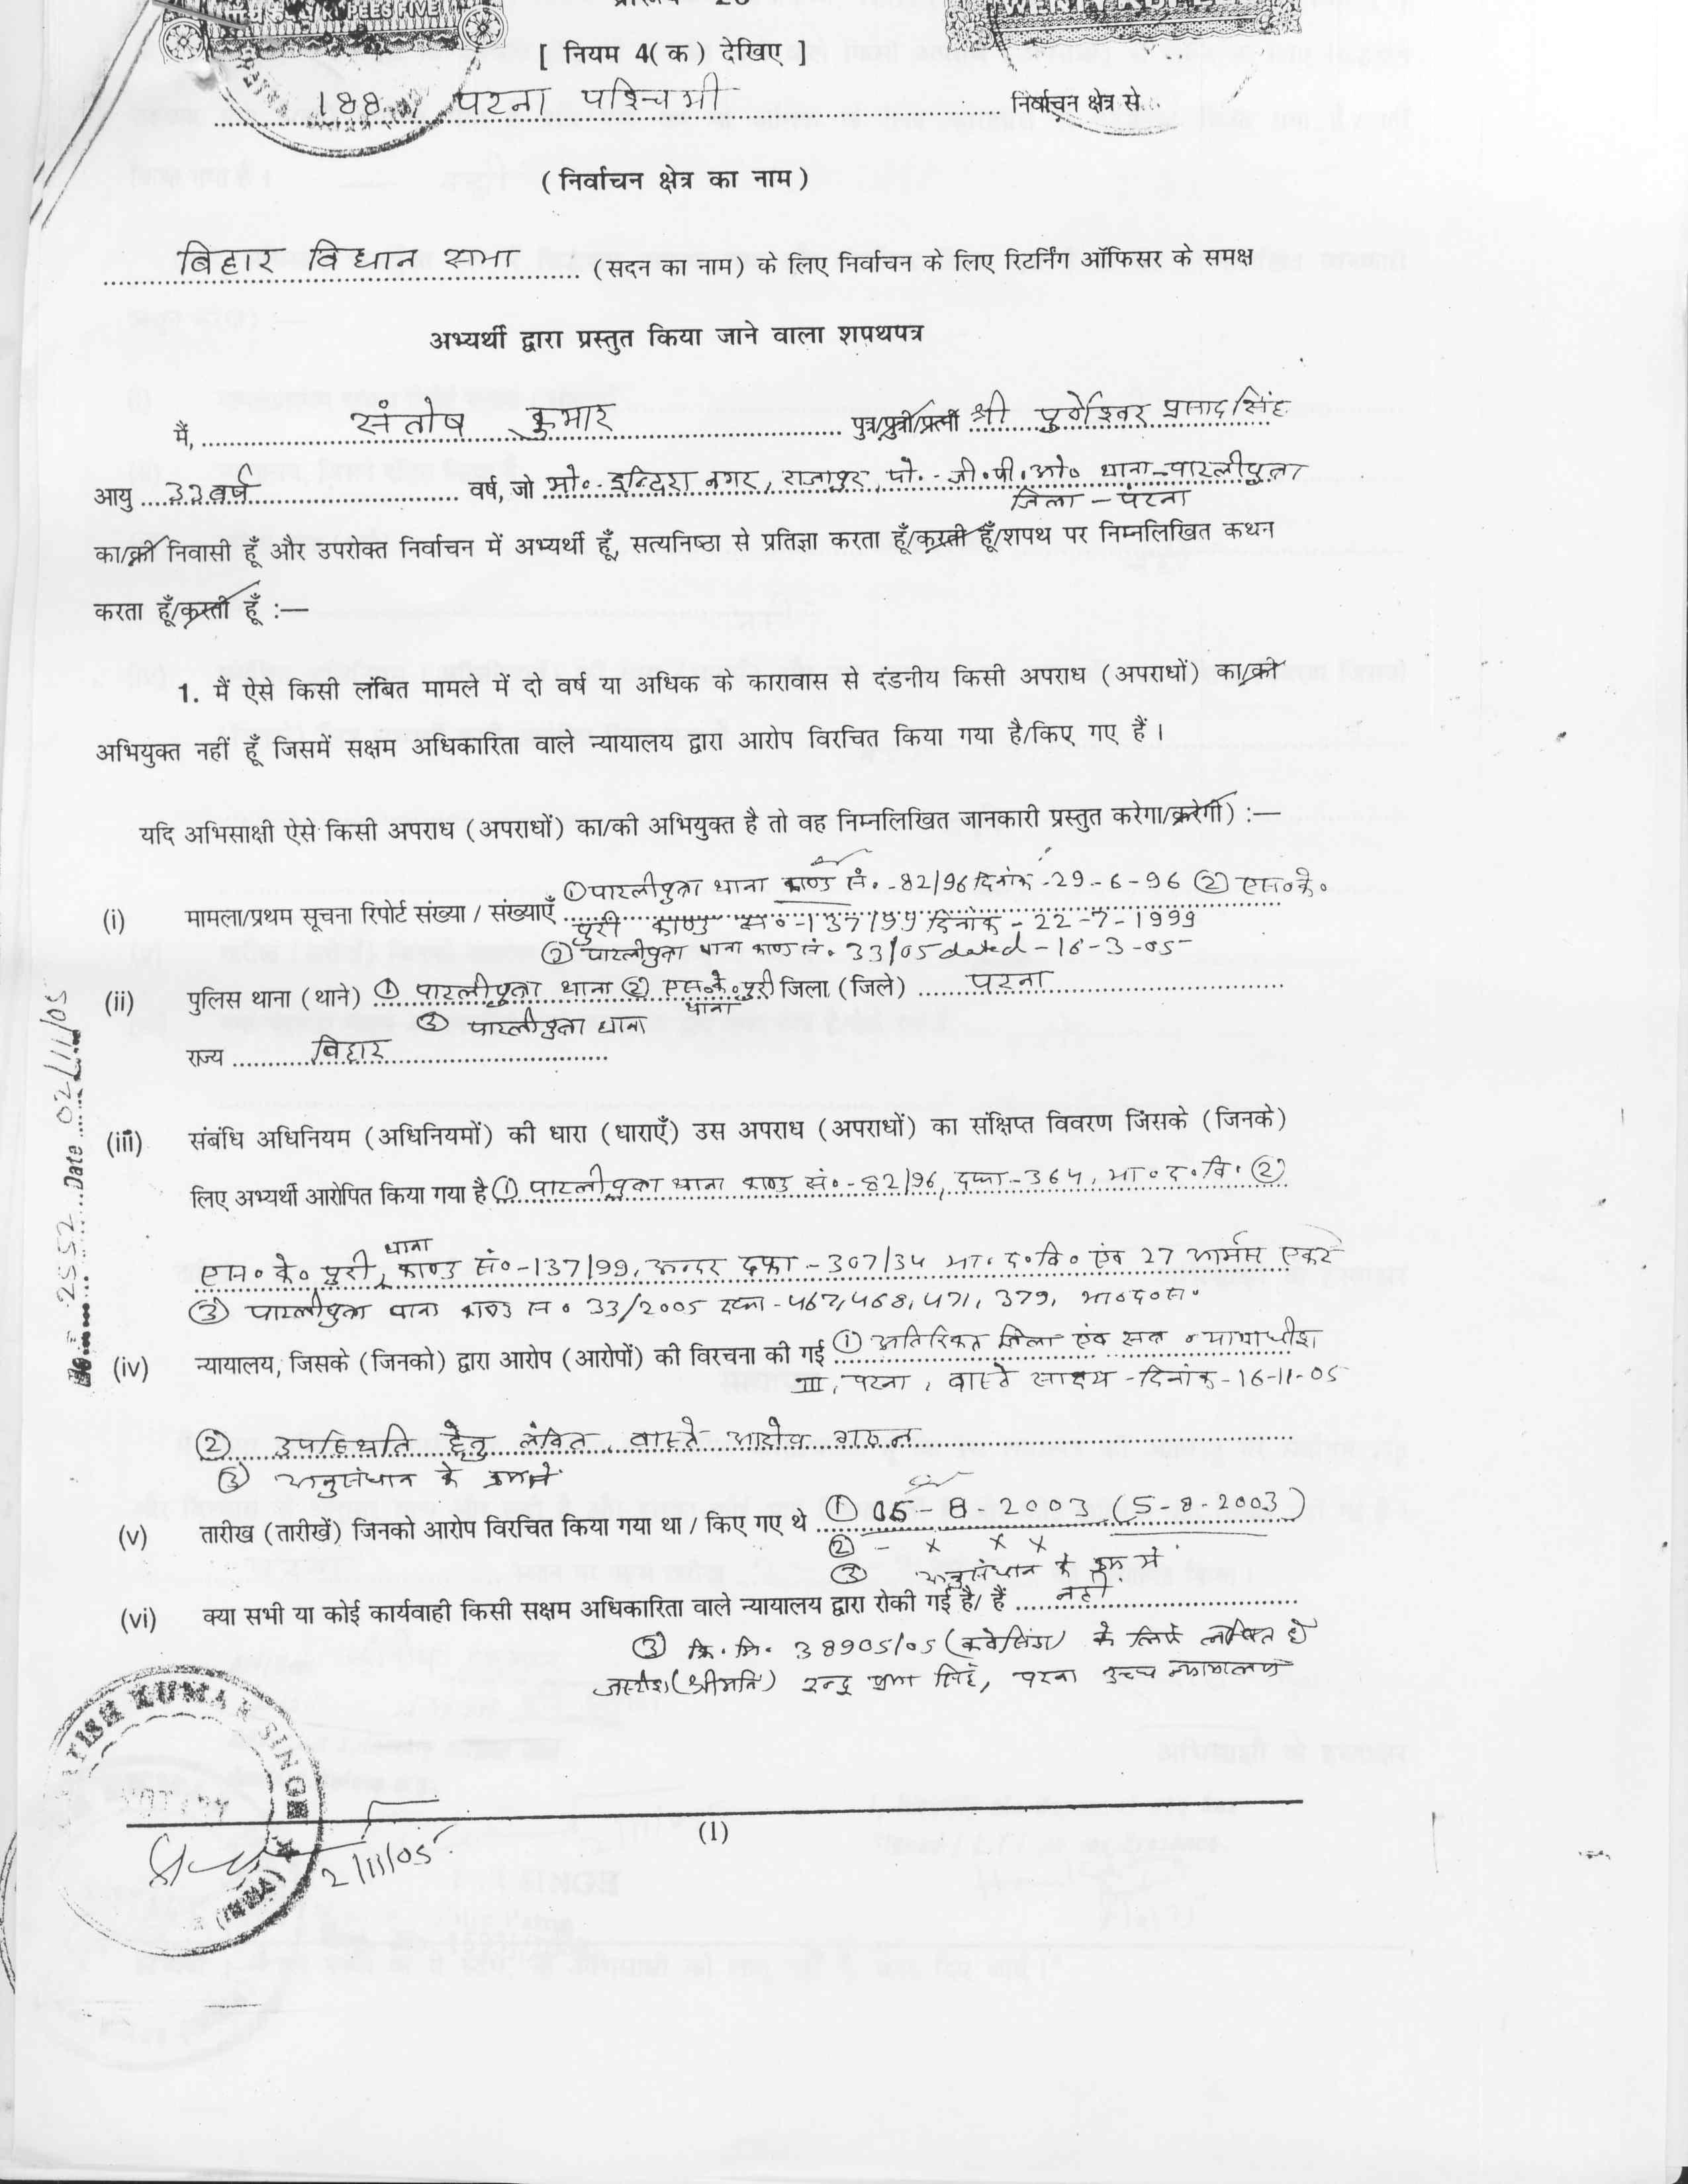 RUPEES FIVE
[ नियम 4( क ) देखिए ]
188 पटना पश्चिमी निर्वाचन क्षेत्र से
( निर्वाचन क्षेत्र का नाम )
बिहार विधान सभा (सदन का नाम) के लिए निर्वाचन के लिए रिटर्निंग ऑफिसर के समक्ष
अभ्यर्थी द्वारा प्रस्तुत किया जाने वाला शपथपत्र
मैं, संतोष कुमार पुत्र/पुत्री/पत्नी श्री पुर्णेश्वर प्रसाद सिंह
आयु 32 वर्ष वर्ष, जो मो०-इन्दिरा नगर, राजापुर, पो.-जी.पी.ओ० थाना-पाटलीपुत्रा
जिला - पटना
का/की निवासी हूँ और उपरोक्त निर्वाचन में अभ्यर्थी हूँ, सत्यनिष्ठा से प्रतिज्ञा करता हूँ/करती हूँ/शपथ पर निम्नलिखित कथन
करता हूँ/करती हूँ :—
1. मैं ऐसे किसी लंबित मामले में दो वर्ष या अधिक के कारावास से दंडनीय किसी अपराध (अपराधों) का/की
अभियुक्त नहीं हूँ जिसमें सक्षम अधिकारिता वाले न्यायालय द्वारा आरोप विरचित किया गया है/किए गए हैं ।
यदि अभिसाक्षी ऐसे किसी अपराध (अपराधों) का/की अभियुक्त है तो वह निम्नलिखित जानकारी प्रस्तुत करेगा/करेगी) :—
① पाटलीपुत्रा थाना काण्ड सं.-82/96 दिनांक-29-6-96 ② एस०के०
(i) मामला/प्रथम सूचना रिपोर्ट संख्या / संख्याएँ पुरी काण्ड स०-137/99 दिनांक-22-7-1999
पाटलीपुत्रा थाना काण्ड सं. 33/05 dated-16-3-05
(ii) पुलिस थाना (थाने) ① पाटलीपुत्रा थाना ② एस०के०पुरी जिला (जिले) पटना
थाना
③ पाटलीपुत्रा थाना
राज्य बिहार
(iii) संबंधि अधिनियम (अधिनियमों) की धारा (धाराएँ) उस अपराध (अपराधों) का संक्षिप्त विवरण जिसके (जिनके)
लिए अभ्यर्थी आरोपित किया गया है ① पाटलीपुत्रा थाना काण्ड सं०-82/96, दफा-364, भा०द०वि. ②
थाना
एस०के० पुरी, काण्ड सं०-137/99, अन्दर दफा-307/34 भा.द०वि० एंव 27 आर्मस एक्ट
③ पाटलीपुत्रा थाना काण्ड स० 33/2005 दफा-467, 468, 471, 379, भा०द०स.
(iv) न्यायालय, जिसके (जिनको) द्वारा आरोप (आरोपों) की विरचना की गई ① अतिरिक्त जिला एंव सत्र न्यायाधीश
III, पटना, वास्ते साक्ष्य-दिनांक-16-11-05
② उपस्थिति हेतु लंबित, वास्ते आरोप गठन
③ अनुसंधान के क्रम में
(v) तारीख (तारीखें) जिनको आरोप विरचित किया गया था / किए गए थे ① 05-8-2003 (5-8-2003)
② - x x x
③ अनुसंधान के क्रम में
(vi) क्या सभी या कोई कार्यवाही किसी सक्षम अधिकारिता वाले न्यायालय द्वारा रोकी गई है/ हैं नहीं
③ क्रि. मि. 38905/05 के लिए लंबित है
(श्रीमति) इन्दु प्रभा सिंह, पटना उच्च न्यायालय
2552 Date 02/11/05
(1)
SATISH KUMAR SINGH
NOTARY
2/11/05